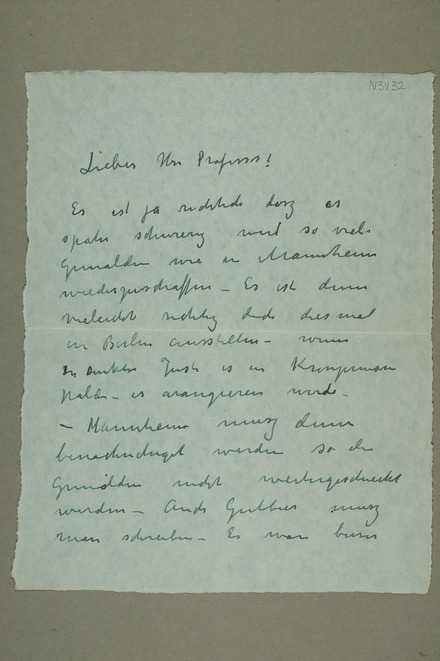 N3432
Lieber Herr Professor!
Es ist ja dasz es
später schwierig wird so viele
Gemälden wie in Mannheim
wiederzuschaffen – Es ist dann
vieleicht richtig doch diesmal
in Berlin ausstellen – wenn
Justi es in Kronprinzen
palä – es arangieren wurde –
– Mannheim musz dann
benachrichtiget werden so die
Gemälden nicht weitergeschickt
werden – Auch Gutbier musz
man schreiben – Es war